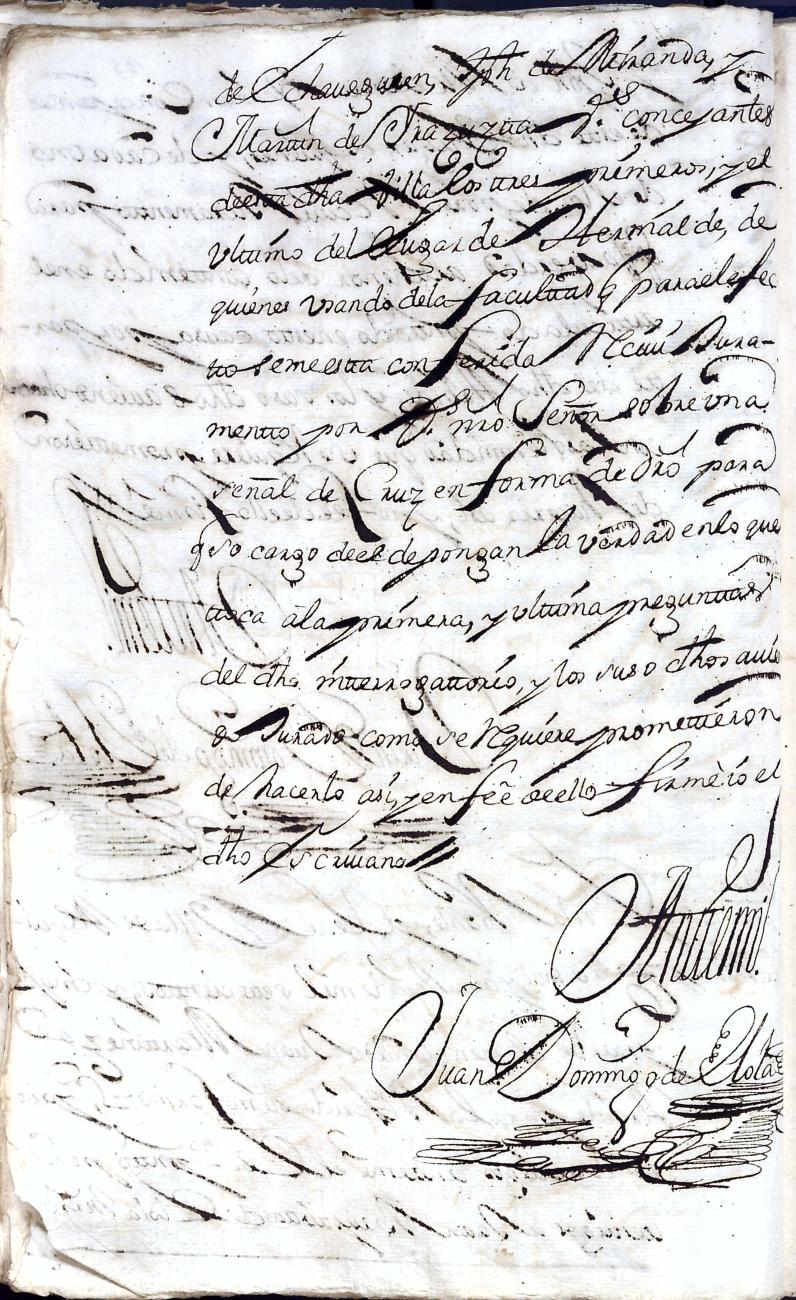 de Echaueguren, Jph de Miranda, y
Martin de Yrazuzta Vos concejantes
de esta dha Villa los tres primeros, y el
vltimo del Lugar de Hernialde, de
quienes vsando dela facultad q para el efec
tto se me estta conferida Rciui Jura-
mentto por Ds nro Señor sobre vna
señal de Cruz en forma de Dro para
q so cargo de el depongan la verdad en lo que
ttoca â la primera, y vlttima preguntas
del dho intterrogattorio, y los suso dhos auien
do Jurado como se Rquiere promettieron
de hacerlo asi, y en feê de ello firmè io el
dho Escriuano
Antemi.
Juan Domingo de